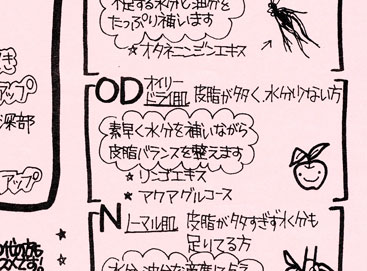 不足する水分と油分を
たっぷり補います
★オタネニンジンエキス
OD オイリー
ドライ肌 皮脂が多く、水分少ない方
素早く水分を補いながら
皮脂バランスを整えます
★リンゴエキス
★アクアグルコース
N ノーマル肌 皮脂が多すぎず水分も
足りてる方
アップ
深部
アップ